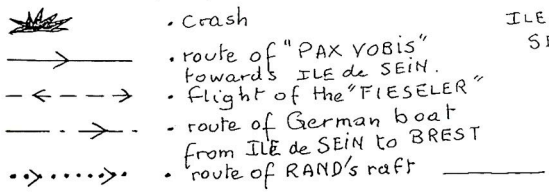 • Crash
ILE
SE
• route of "PAX VOBIS"
towards ILE de SEIN.
• flight of the "FIESELER"
• route of German boat
from ILE de SEIN to BREST
• route of RAND's raft